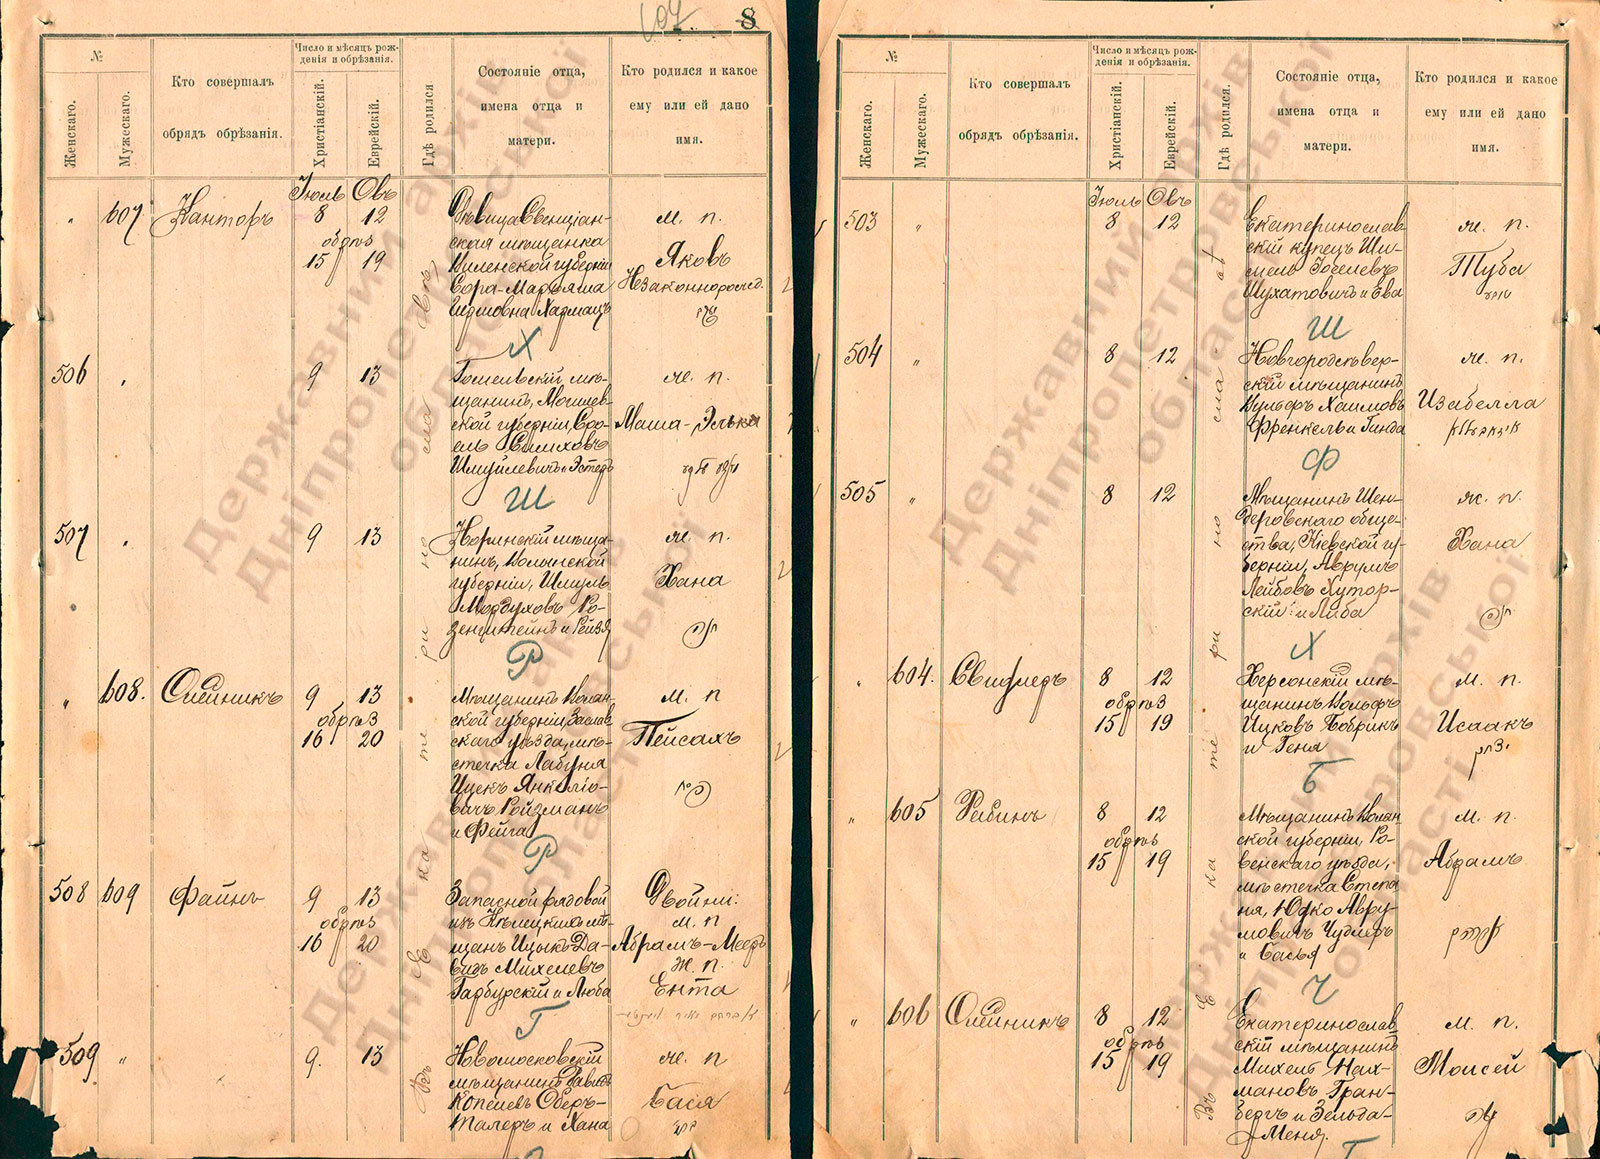 607
8
№
Женскаго.
Мужескаго.
Кто совершалъ
обрядъ обрѣзанія.
Число и мѣсяцъ рож-
денія и обрѣзанія.
Христіанскій.
Еврейскій.
Гдѣ родился
Состояніе отца,
имена отца и
матери.
Кто родился и какое
ему или ей дано
имя.
Іюль Овъ
" 607 Канторъ 8 12
обрѣз
15 19
Дѣвица Свенціан-
ская мѣщанка
Виленской губерніи
Сора-Марьяша
м. п.
Яковъ
Незаконнорожд.
Х
506 " 9 13
Гомельскій мѣ-
щанинъ, Могилев-
ской губерніи, Сро-
ель
Шмуйлевичъ и Эстеръ
ж. п.
Маша-Элька
Ш
507 " 9 13
Норинскій мѣща-
нинъ, Волынской
губерніи, Шмуль
Мордуховъ Ро-
зенштейнъ и Рейзя
ж. п.
Хана
Р
" 608. Олийникъ 9 13
обрѣз
16 20
Мѣщанинъ Волын-
ской губерніи, Заслав
скаго уѣзда, мѣ-
стечка Лабуня
Ицекъ Янкелio-
вичъ Ройзманъ
и Фейга
м. п
Пейсахъ
Р
508 609 Файнъ 9 13
обрѣз
16 20
Запасной рядовой
изъ мѣ-
щанъ Ицыкъ Да-
видъ Михелевъ
Гарбурскій и Люба
Двойни:
м. п
Абрамъ-Мееръ
ж. п.
Ента
Г
509 " 9. 13
Новомосковскій
мѣщанинъ Давидъ
Копелевъ Оберъ-
талеръ и Хана
ж. п
Бася
Въ Екатеринославѣ
№
Женскаго.
Мужескаго.
Кто совершалъ
обрядъ обрѣзанія.
Число и мѣсяцъ рож-
денія и обрѣзанія.
Христіанскій.
Еврейскій.
Гдѣ родился.
Состояніе отца,
имена отца и
матери.
Кто родился и какое
ему или ей дано
имя.
Іюль Овъ
503 " 8 12
Екатеринослав
скій купецъ Ши-
мель Іоселевъ
Шухатовичъ и Ева
ж. п.
Туба
Ш
504 " 8 12
Новгородсѣвер-
скій мѣщанинъ
Вульфъ Хаимовъ
Френкель и Гинда
ж. п.
Изабелла
Ф
505 " 8 12
Мѣщанинъ Шен-
деровскаго обще-
ства, Кіевской гу-
берніи, Аврумъ
Лейбовъ Хутор-
скій и Либа
ж. п.
Хана
Х
" 604. 8 12
обрѣз
15 19
Херсонскій мѣ-
щанинъ Вольфъ
Ицковъ Бобринъ
и Геня
м. п.
Исаакъ
Б
" 605 Рабинъ 8 12
обрѣз
15 19
Мѣщанинъ Волын
ской губерніи, Ро-
венскаго уѣзда,
мѣстечка Степа
ня, Юдко Авру-
мовичъ
и Басья
м. п.
Абрамъ
Ч
" 606 Олийникъ 8 12
обрѣз
15 19
Екатеринослав
скій мѣщанинъ
Михель Нах-
мановъ Гран-
бергъ и Зельда-
Меня.
м. п.
Моисей
Г
Въ Екатеринославѣ
Державний архів
Дніпропетровської
області